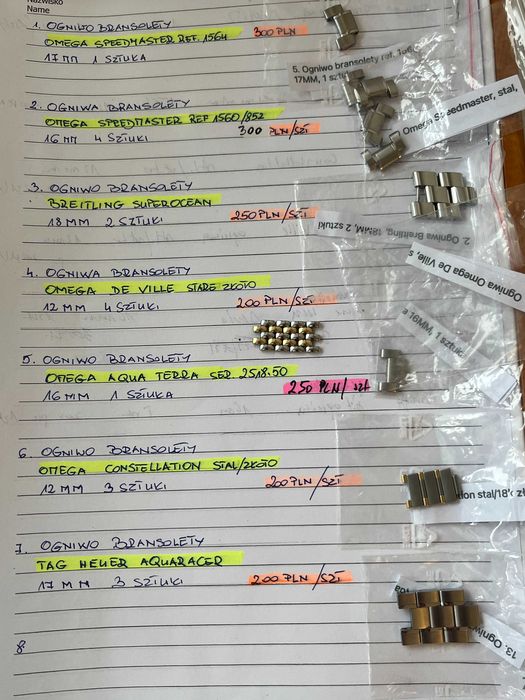 Nazwisko
Name
1. OGNIWO BRANSOLETY
OMEGA SPEEDMASTER REF. 1564 300 PLN
17 MM 1 SZTUKA
5. Ogniwo bransolety ref.
17MM, 1
2. OGNIWA BRANSOLETY
OMEGA SPEEDMASTER REF 1560/852
16 MM 4 SZTUKI 300 PLN/SZT
Omega Speedmaster, stal,
3. OGNIWO BRANSOLETY
BREITLING SUPEROCEAN
18 MM 2 SZTUKI 250 PLN/SZT
2. Ogniwa Breitling, 18MM, 2 sztuki
4. OGNIWA BRANSOLETY
OMEGA DE VILLE STARE ZŁOTO
12 MM 4 SZTUKI 200 PLN/SZT
Ogniwa Omega De Ville, s
a 16MM, 1 sztuk
5. OGNIWO BRANSOLETY
OMEGA AQUA TERRA SER. 2518.50
16 MM 1 SZTUKA 250 PLN/szt
6. OGNIWO BRANSOLETY
OMEGA CONSTELLATION STAL/ZŁOTO
12 MM 3 SZTUKI 200 PLN/SZT
don stal/18'c zł
7. OGNIWO BRANSOLETY
TAG HEUER AQUARACER
17 MM 3 SZTUKI 200 PLN/SZT
13. Ogniw
8.